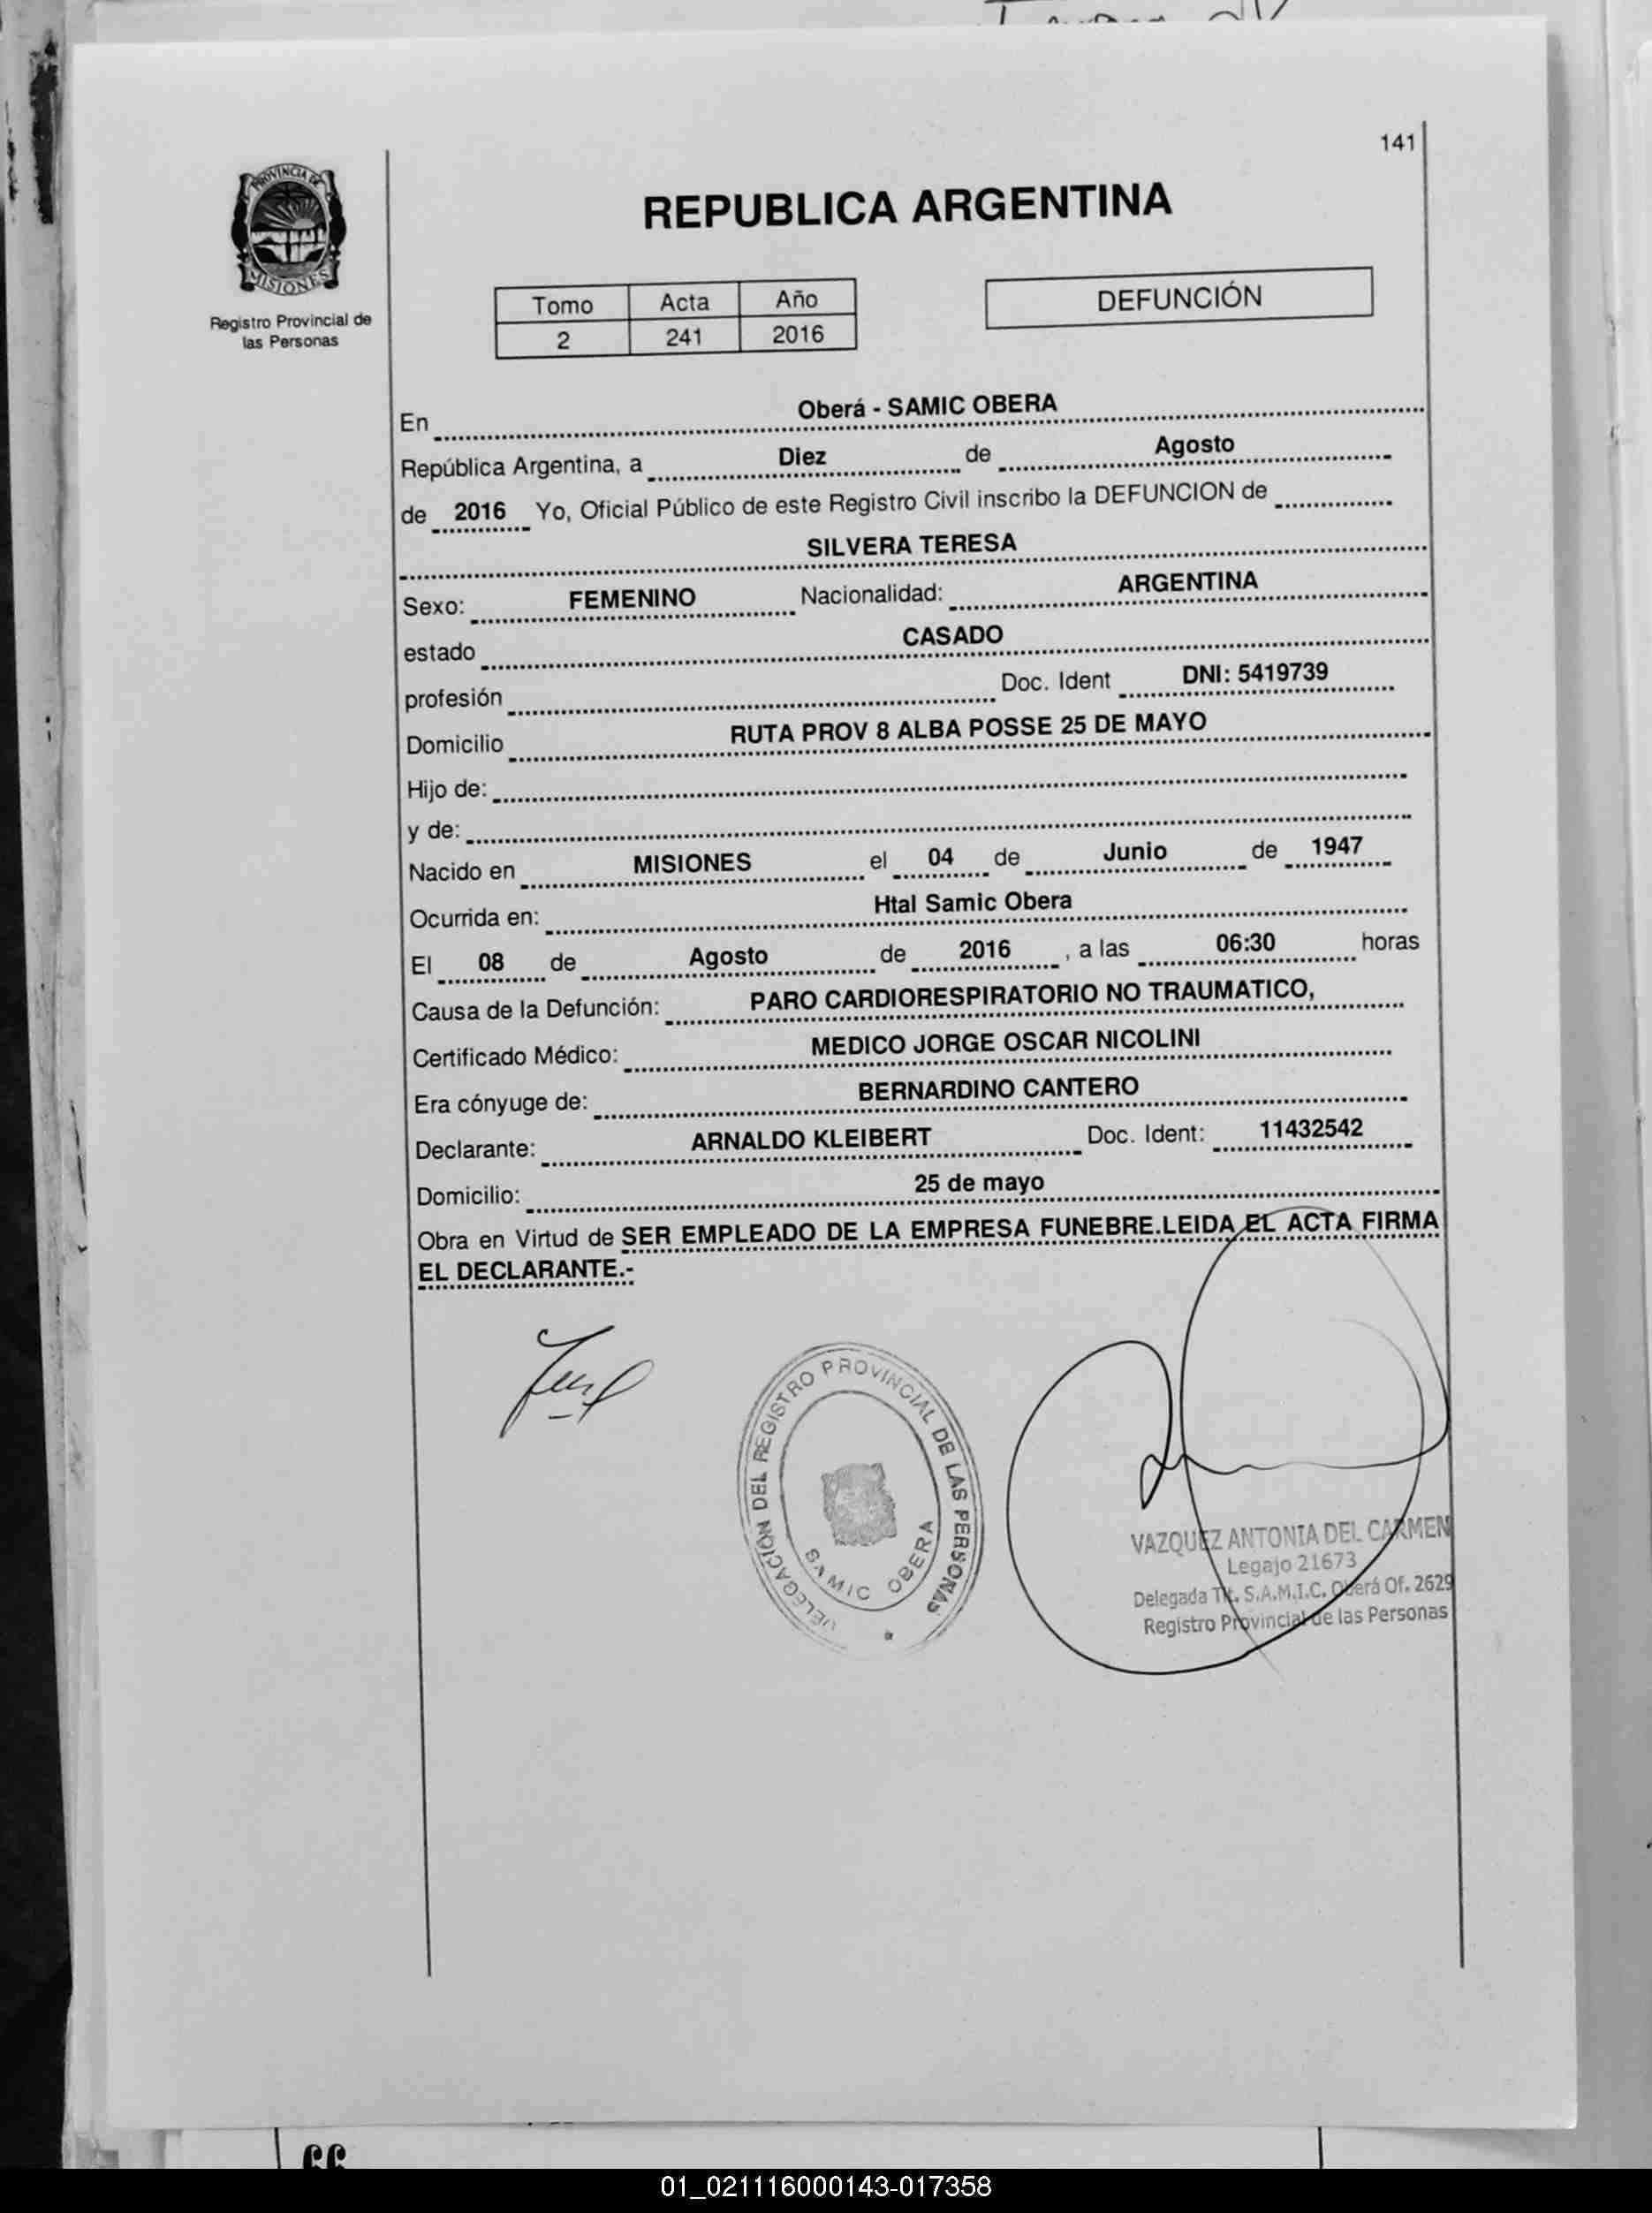 141
PROVINCIA DE
MISIONES
Registro Provincial de
las Personas
REPUBLICA ARGENTINA
Tomo Acta Año
2 241 2016
DEFUNCIÓN
En Oberá - SAMIC OBERA
República Argentina, a Diez de Agosto
de 2016 Yo, Oficial Público de este Registro Civil inscribo la DEFUNCION de
SILVERA TERESA
Sexo: FEMENINO Nacionalidad: ARGENTINA
estado CASADO
profesión Doc. Ident DNI: 5419739
Domicilio RUTA PROV 8 ALBA POSSE 25 DE MAYO
Hijo de:
y de:
Nacido en MISIONES el 04 de Junio de 1947
Ocurrida en: Htal Samic Obera
El 08 de Agosto de 2016 , a las 06:30 horas
Causa de la Defunción: PARO CARDIORESPIRATORIO NO TRAUMATICO,
Certificado Médico: MEDICO JORGE OSCAR NICOLINI
Era cónyuge de: BERNARDINO CANTERO
Declarante: ARNALDO KLEIBERT Doc. Ident: 11432542
Domicilio: 25 de mayo
Obra en Virtud de SER EMPLEADO DE LA EMPRESA FUNEBRE.LEIDA EL ACTA FIRMA
EL DECLARANTE.-
DELEGACION DEL REGISTRO PROVINCIAL DE LAS PERSONAS
SAMIC OBERA
VAZQUEZ ANTONIA DEL CARMEN
Legajo 21673
Delegada Tit. S.A.M.I.C. Oberá Of. 2629
Registro Provincial de las Personas
01_021116000143-017358